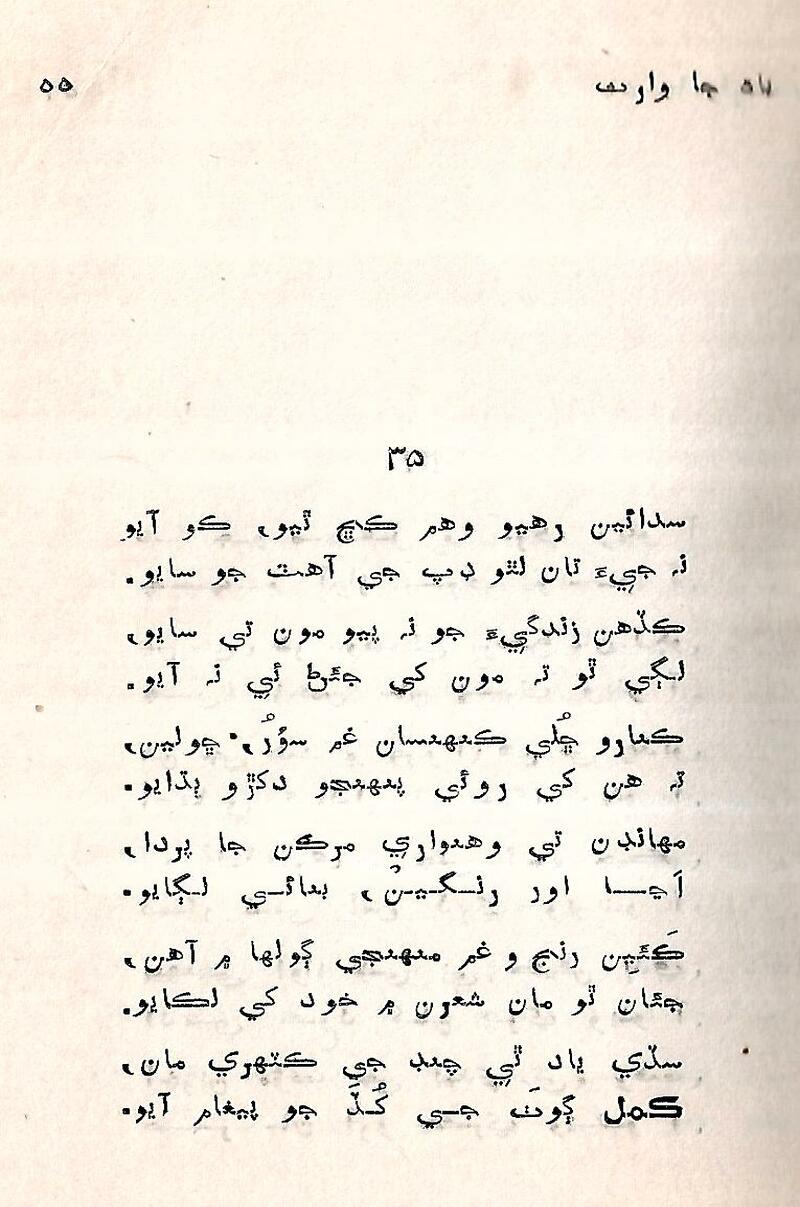 جا وارث ۵۵
۳۵
سدائين رهيو وهم ڪڇ ٿيو، ڪو آيو
نہ جيءَ تان لٿو ڊپ جي آهٽ جو سايو.
ڪڏهن زندگيءَ جو نہ پيو مون تي سايو،
لڳي ٿو تہ مون کي جڻڻ ئي نہ آيو.
ڪنارو ڇُلي ڪنهنسان غم سؤرُ، ڇولين،
تہ هن کي روئي پنهنجو دکڙو ٻڌايو.
مهانڊن تي وهنواري مرڪن جا پردا،
اَڇا اور رنگين، بنائي لڳايو.
ڪَئين رنج و غم منهنجي ڳولها ۾ آهن،
ڄڻان ٿو مان شعرن ۾ خود کي لڪايو.
سڏي ياد ٿي چنڊ جي ڪٽهري مان،
ڪمل ڳوٺ جي کُڏَ جو پيغام آيو.